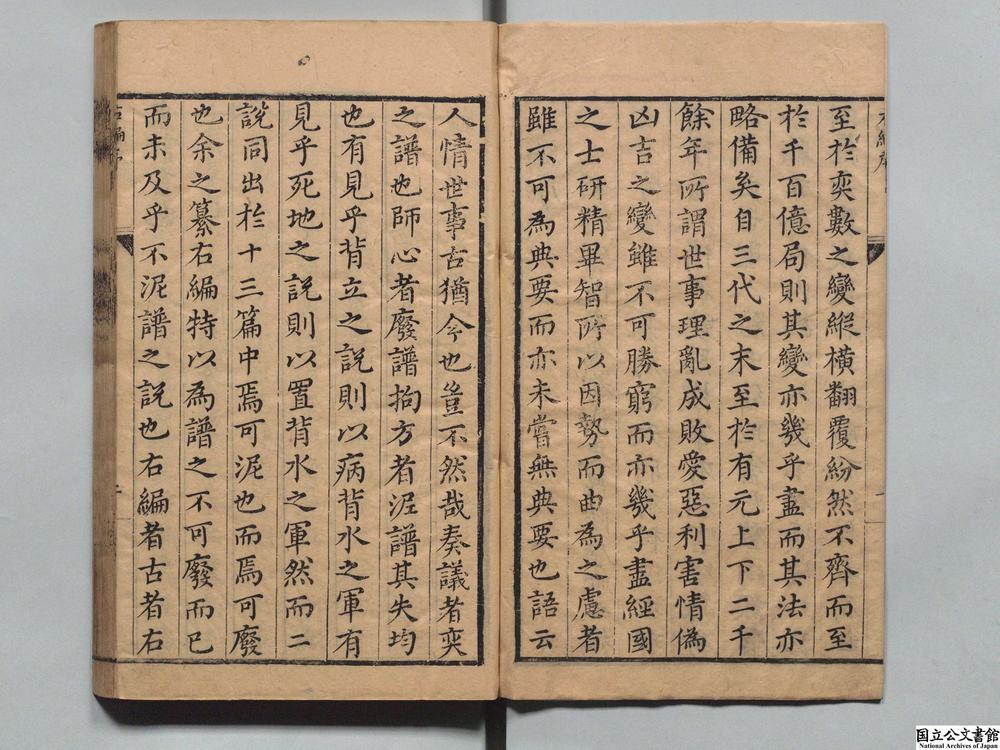 至於奕數之變縱橫翻覆紛然不齊而至
於千百億局則其變亦幾乎盡而其法亦
略備矣自三代之末至於有元上下二千
餘年所謂世事理亂成敗愛惡利害情偽
凶吉之變雖不可勝窮而亦幾乎盡經國
之士研精畢智所以因勢而曲為之慮者
雖不可為典要而亦未嘗無典要也語云
人情世事古猶今也豈不然哉奏議者奕
之譜也師心者廢譜拘方者泥譜其失均
也有見乎背立之說則以病背水之軍有
見乎死地之說則以置背水之軍然而二
說同出於十三篇中焉可泥也而焉可廢
也余之纂右編特以為譜之不可廢而已
而未及乎不泥譜之說也右編者古者右
国立公文書館
National Archives of Japan